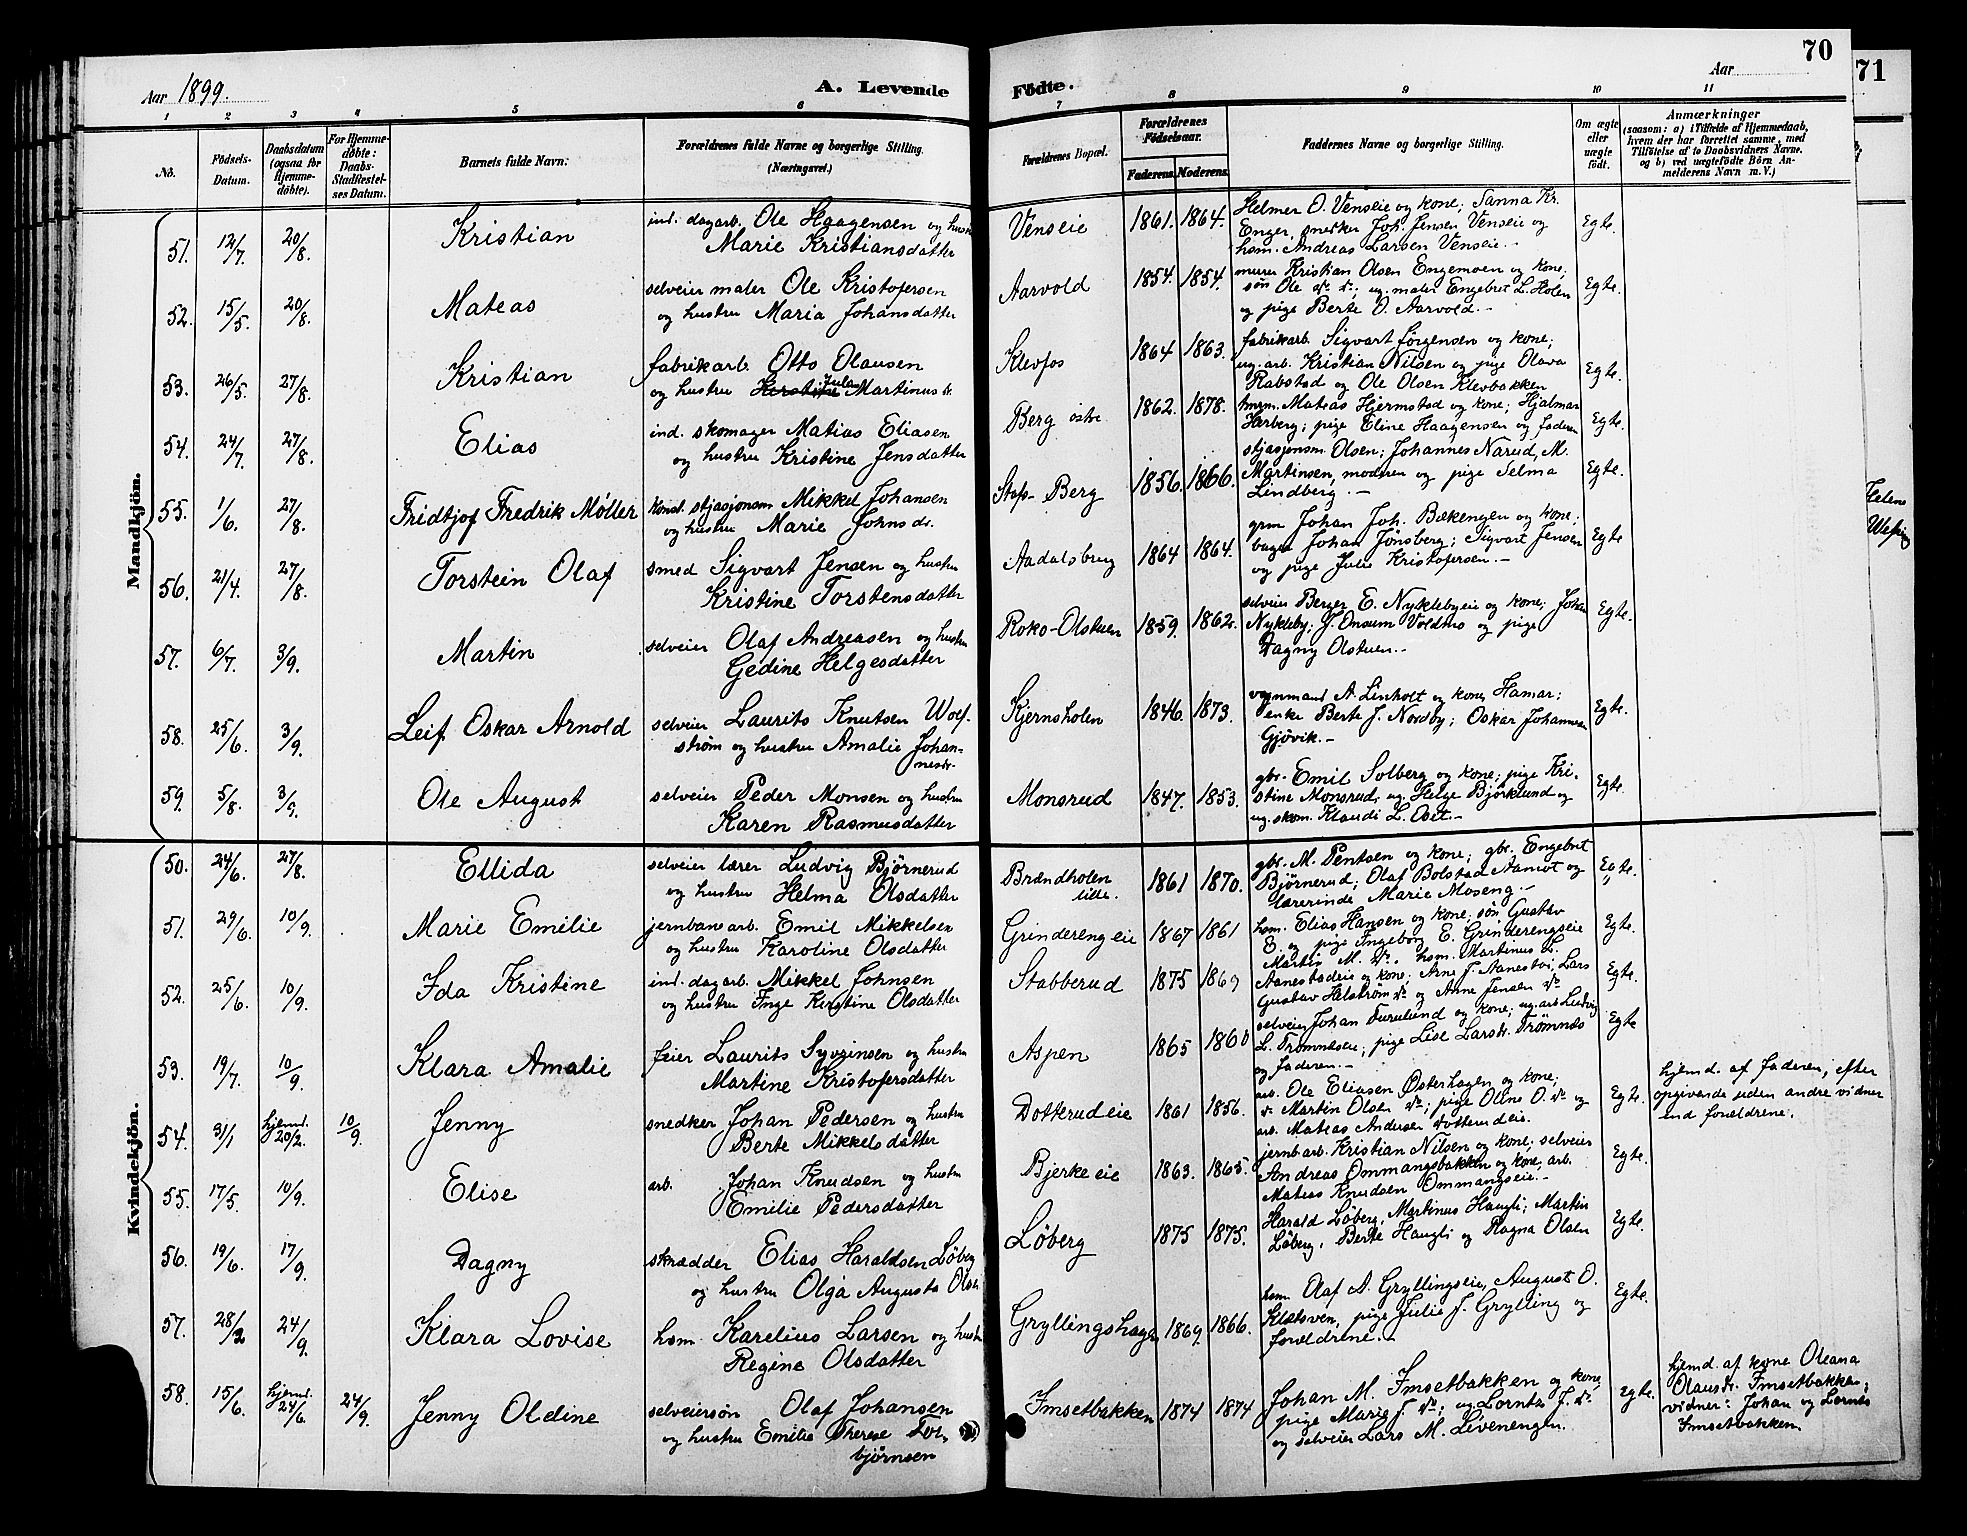 Aar 1899.
A. Levende Födte.
Aar
70
71
1 2 3 4 5 6 7 8 9 10 11
No.
Födsels-Datum.
Daabsdatum (ogsaa for Hjemme-döbte).
For Hjemme-döbte: Daabs-Stadfæstel-ses Datum.
Barnets fulde Navn:
Forældrenes fulde Navne og borgerlige Stilling. (Næringsvei.)
Forældrenes Bopæl.
Forældrenes Födselsaar.
Faderens. Moderens.
Faddernes Navne og borgerlige Stilling.
Om ægte eller uægte födt.
Anmærkninger
(saasom: a) i Tilfælde af Hjemmedaab, hvem der har forrettet samme, med Tilföielse af to Daabsvidners Navne, og b) ved uægtefödte Börn An-melderens Navn m. V.)
Mandkjön.
51. 12/7. 20/8. Kristian ind. dagarb. Ole Haagensen og hustru
Marie Kristiansdatter
Venseie 1861. 1864. Helmer O. Venseie og kone; Sanna Kr.
Enger, snedker Joh. Jensen Venseie og
hsm. Andreas Larsen Venseie.- Egte.
52. 15/5. 20/8. Mateas selveier maler Ole Kristofersen
og hustru Maria Johansdatter
Aarvold 1854. 1854. murer Kristian Olsen Engemoen og kone;
sön Ole do do; ug. maler Engebret L. Holen
og pige Berte O. Aarvold.- Egte.
53. 26/5. 27/8. Kristian fabrikarb. Otto Olausen
og hustru Julie Martinusdr.
Klevfos 1864 1863. fabrikarb. Sigvart Jörgensen og kone;
ug. arb. Kristian Nilsen og pige Olava
Rabstad og Ole Olsen Klevbakken Egte.
54. 24/7. 27/8. Elias ind. skomager Matias Eliasen
og hustru Kristine Jensdatter
Berg östre 1862. 1878. Mateas Hjermstad og kone; Hjalmar
Harberg; pige Eline Haagensen og faderen Egte.
55. 1/6. 27/8. Fridtjof Fredrik Møller konst. stjasjonsm Mikkel Johansen
og hustru Marie Johnsdr.
Berg 1856. 1866. stjasjonsm. Olsen; Johannes Narud, M.
Martinsen, moderen og pige Selma
Lindberg.- Egte.
56. 21/4. 27/8. Torstein Olaf smed Sigvart Jensen og hustru
Kristine Torstensdatter
Aadalsbrug 1864 1864. grm Johan Joh. Bækengen og kone;
bager Johan Jönsberg; Sigvart Jensen
og pige Julie Kristofersen.- Egte
57. 6/7. 3/9. Martin selveier Olaf Andreasen og hustru
Gedine Helgesdatter
Roko-Olstuen 1859. 1862. selveier Berger E. Nyklebyeie og kone; Johan
Nykleby; J. Onsum Voldmo og pige
Dagny Olstuen.- Egte.
58. 25/6. 3/9. Leif Oskar Arnold selveier Laurits Knutsen Wolf-
strøm og hustru Amalie Johan-
nesdr.
Kjernsholen 1846. 1873. vognmand A. Linholt og kone, Hamar;
enke Berte J. Nordby; Oskar Johannesen
Gjövik.- Egte.
59. 5/8. 3/9. Ole August selveier Peder Monsen og hustru
Karen Rasmusdatter
Monsrud 1847. 1853. gbr. Emil Solberg og kone; pige Kri-
stine Monsrud; ug. Helge Björklund og
ug. skom. Klaudi L. Obet.- Egte.
Kvindekjön.
50. 24/6. 27/8. Ellida selveier lærer Ludvig Bjørnerud
og hustru Helma Olsdatter
Brændholen lille. 1861 1870. gbr. M. Pentsen og kone; gbr. Engebret
Bjørnerud; Olaf Bolstad Aamot og
lærerinde Marie Moseng.- Egte.
51. 29/6. 10/9. Marie Emilie jernbanearb. Emil Mikkelsen
og hustru Karoline Olsdatter
Grinderengeie 1867 1861 hsm. Elias Hansen og kone; sön Gustav
E. og pige Ingeborg E. Grinderengseie
Martin M. do. Egte.
52. 25/6. 10/9. Ida Kristine ind. dagarb. Mikkel Johnsen
og hustru Inge Kirstine Olsdatter
Stabberud 1875 1869 hsm. Martinus L.
Aanestadeie og kone; Arne J. Aanestöi, Lars
Gustav Helström do og Anne Jensen do Egte.
53. 19/7. 10/9. Klara Amalie feier Laurits Syversen og hustru
Martine Kristofersdatter
Aspen 1865 1860 selveier Johan Furulund og kone; ug. arb. Ludvig
L. Trömnæseie; pige Lise Larsdr. Trömnæs
og faderen.- Egte
54. 31/1 hjemd. 20/2. 10/9. Jenny snedker Johan Pedersen og hustru
Berte Mikkelsdatter
Dotterudeie 1861 1856. arb. Ole Eliasen Østerhagen og kone;
do Martin Olsen do; pige Oline O. do og
arb. Mateas Andersen Dotterudeie. Egte.
hjemd. af faderen, efter
opgivende uden andre vidner
end forældrene.
55. 17/5. 10/9. Elise arb. Johan Knudsen og hustru
Emilie Pedersdatter
Bjerkeeie 1863. 1865. jernb arb. Kristian Nilsen og kone; selveier
Andreas Ommangsbakken og kone; arb.
Mateas Knudsen Ommangseie.- Egte.
56. 19/6. 17/9. Dagny skrædder Elias Haraldsen Løberg
og hustru Olga Augusta Olsdr
Løberg 1875 1875. Harald Løberg, Martinus Haugli; Martin
Løberg, Berte Haugli og Ragna Olsen Egte.
57. 28/2 24/9. Klara Lovise hsm. Karelius Larsen og hustru
Regine Olsdatter
Gryllingshagen 1869. 1866. hsm Olaf A. Gryllingseie, August O.
Kletsven, pige Julie J. Grylling og
forældrene.- Egte.
58. 15/6. hjemd. 24/6. 24/9. Jenny Oldine selveiersön Olaf Johansen
og hustru Emilie Therese Tor-
björnsen
Imsetbakken 1874 1874 Johan M. Imsetbakken og kone,
pige Marie J. do; ug Lorntz J. do
og selveier Lars M. Livenengen. Egte.
hjemd. af kone Oleana
Olausdr. Imsetbakken;
vidner: Johan og Lornts
Imsetbakken.